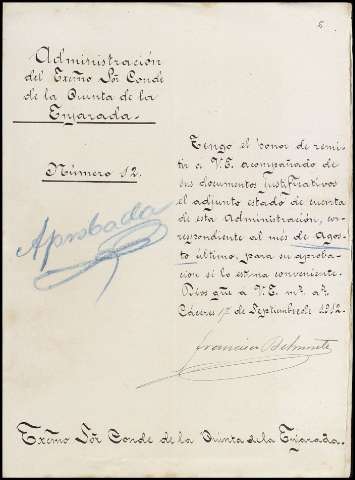 6
Administración
del Exmo Sör Conde
de la Quinta de la
Enjarada.
Número 12.
Aprobada
Tengo el honor de remitir
a V.E. acompañado de
sus documentos justificativos
el adjunto estado de cuenta
de esta Administración, cor-
respondiente al més de Agos-
to último, para su aproba-
cion si lo estima conveniente.
Dios gue a V.E. ms. as.
Cáceres 12 de Septiembre de 1912.
Francisco Belmonte
Exmo Sör Conde de la Quinta de la Enjarada.